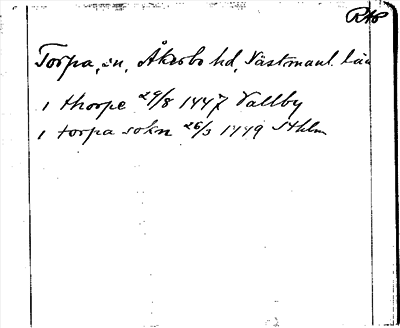 RAp
Torpa, sn, Åkerbo hd, Västmanl. län
i thorpe 29/8 1447 Vallby
i torpa sokn 26/3 1449 Sthlm